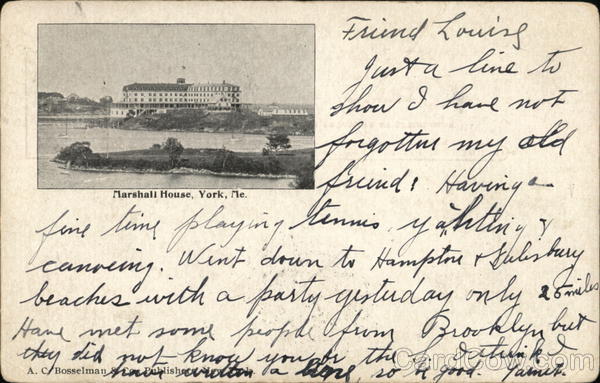 Friend Louise
Just a line to
show I have not
forgotten my old
friend! Having a
Marshall House, York, Me.
fine time playing tennis, yachting &
canoeing. Went down to Hampton & Salisbury
beaches with a party yesterday only 25 miles
Have met some people from Brooklyn but
they did not know you or the
A. C. Bosselman & Co., Publishers, New York
have written a so good.
CardCow.com